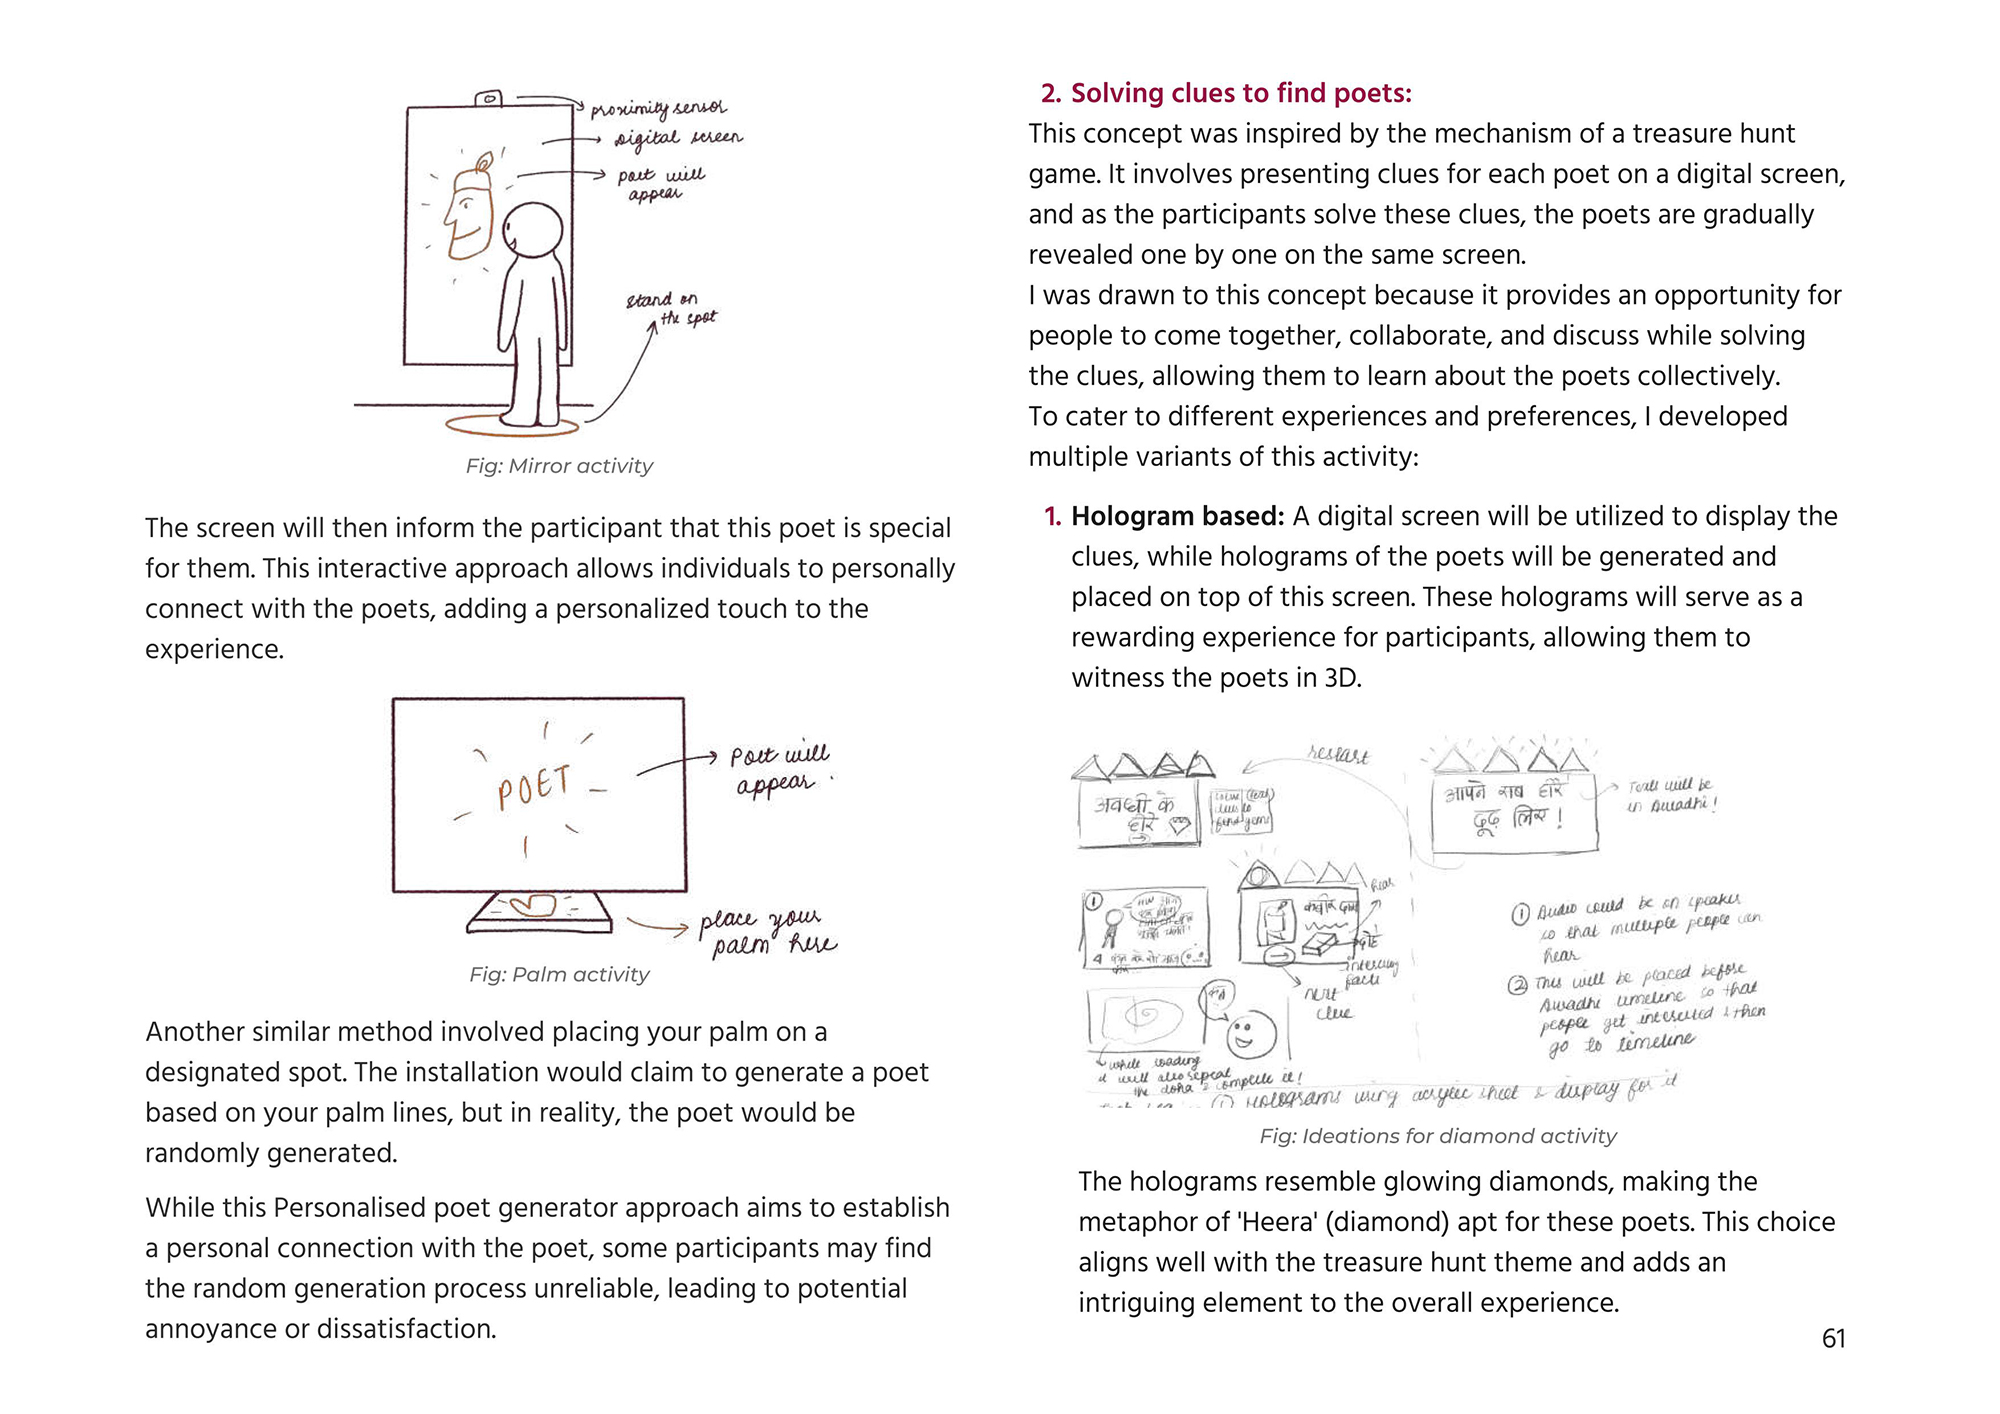 proximity sensor
Digital screen
poet will
appear
stand on
the spot
Fig: Mirror activity
The screen will then inform the participant that this poet is special
for them. This interactive approach allows individuals to personally
connect with the poets, adding a personalized touch to the
experience.
POET
Poet will
appear.
place your
palm here
Fig: Palm activity
Another similar method involved placing your palm on a
designated spot. The installation would claim to generate a poet
based on your palm lines, but in reality, the poet would be
randomly generated.
While this Personalised poet generator approach aims to establish
a personal connection with the poet, some participants may find
the random generation process unreliable, leading to potential
annoyance or dissatisfaction.
2. Solving clues to find poets:
This concept was inspired by the mechanism of a treasure hunt
game. It involves presenting clues for each poet on a digital screen,
and as the participants solve these clues, the poets are gradually
revealed one by one on the same screen.
I was drawn to this concept because it provides an opportunity for
people to come together, collaborate, and discuss while solving
the clues, allowing them to learn about the poets collectively.
To cater to different experiences and preferences, I developed
multiple variants of this activity:
1. Hologram based: A digital screen will be utilized to display the
clues, while holograms of the poets will be generated and
placed on top of this screen. These holograms will serve as a
rewarding experience for participants, allowing them to
witness the poets in 3D.
restart
अवधी के
हीरे
आपने सब हीरे
ढूढ़ लिए!
Text will be
in Awadhi!
1
hear
interesting
facts
next
clue
while loading
it will also repeat
the doha & complete it!
① Audio could be on speaker
so that multiple people can
hear
② This will be placed before
Awadhi timeline so that
people get interested & then
go to timeline
① Holograms using acrylic sheet & display for it
Fig: Ideations for diamond activity
The holograms resemble glowing diamonds, making the
metaphor of 'Heera' (diamond) apt for these poets. This choice
aligns well with the treasure hunt theme and adds an
intriguing element to the overall experience.
61